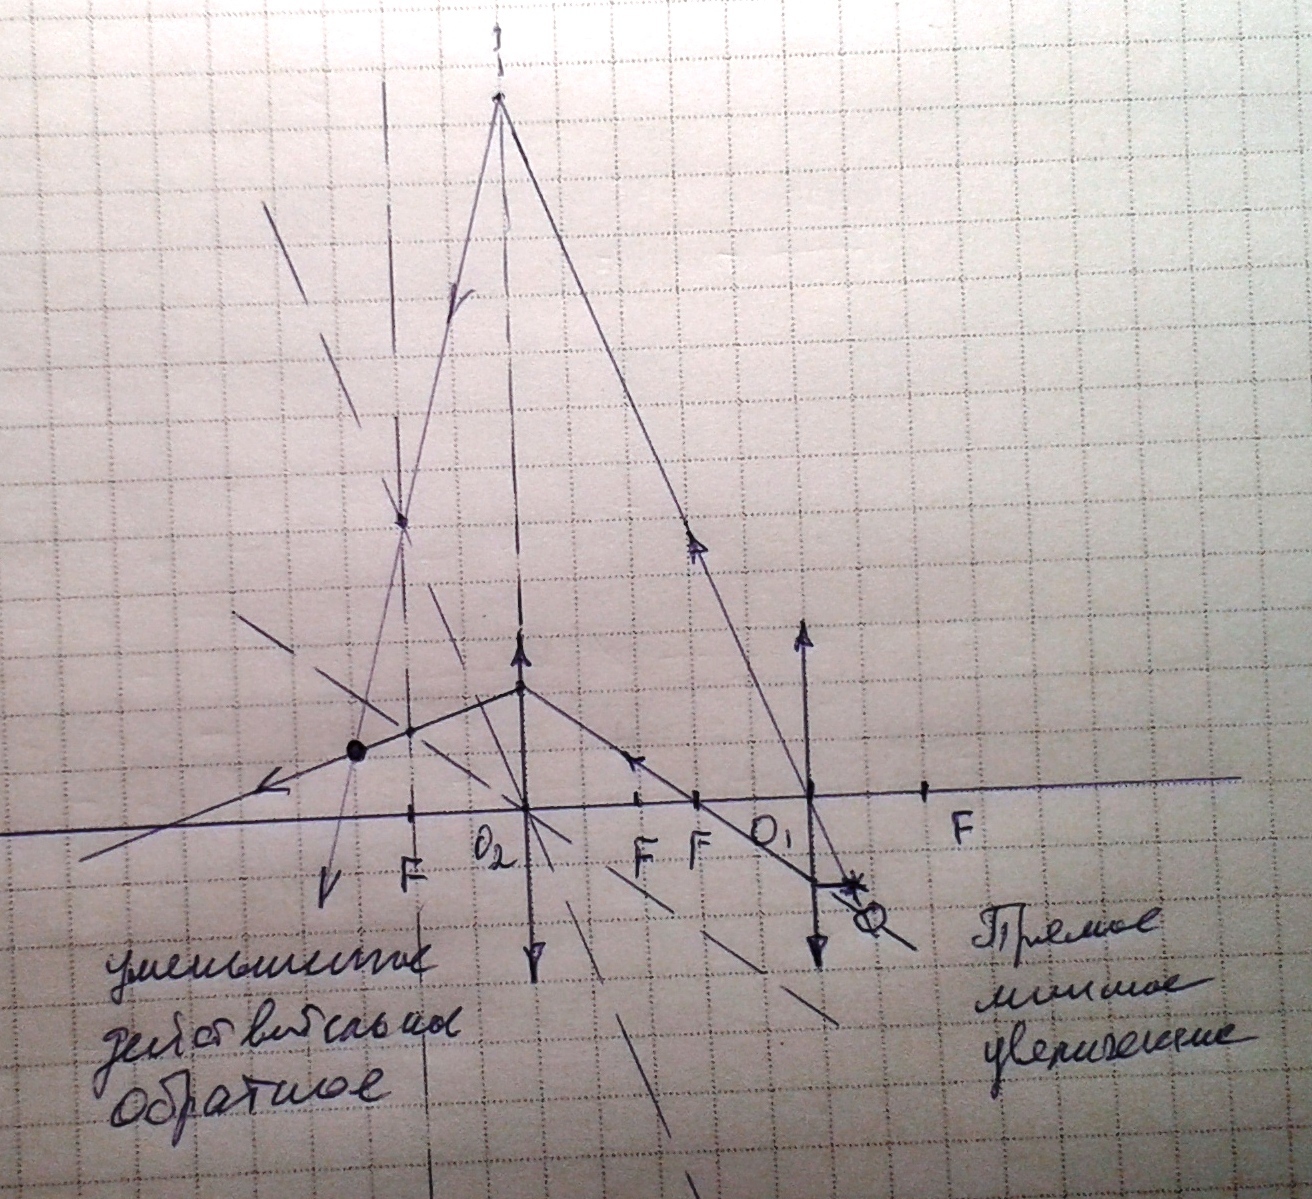 O₂
F
F
F
O₁
F
уменьшенное
действительное
обратное
Прямое
мнимое
увеличенное